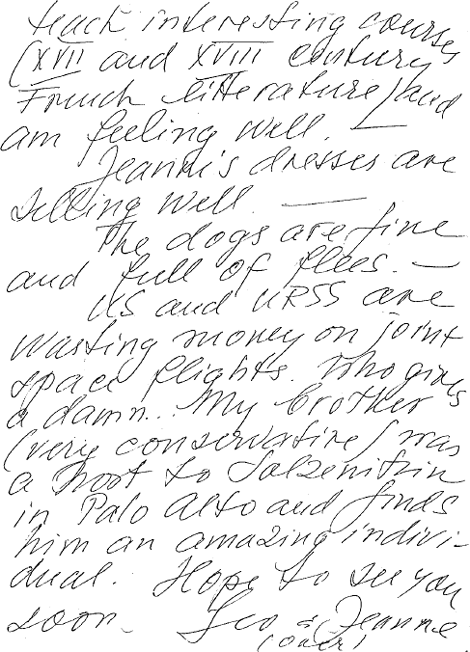 teach interesting courses
(XVII and XVIII century
French litterature) and
am feeling well. —
Jeanne's dresses are
selling well —
The dogs are fine
and full of flees. —
US and URSS are
wasting money on joint
space flights. Who gives
a damn... My brother
(very conservative) was
a host to Solzenitzin
in Palo Alto and finds
him an amazing indivi-
dual. Hope to see you
soon. Geo & Jeanne
(over)